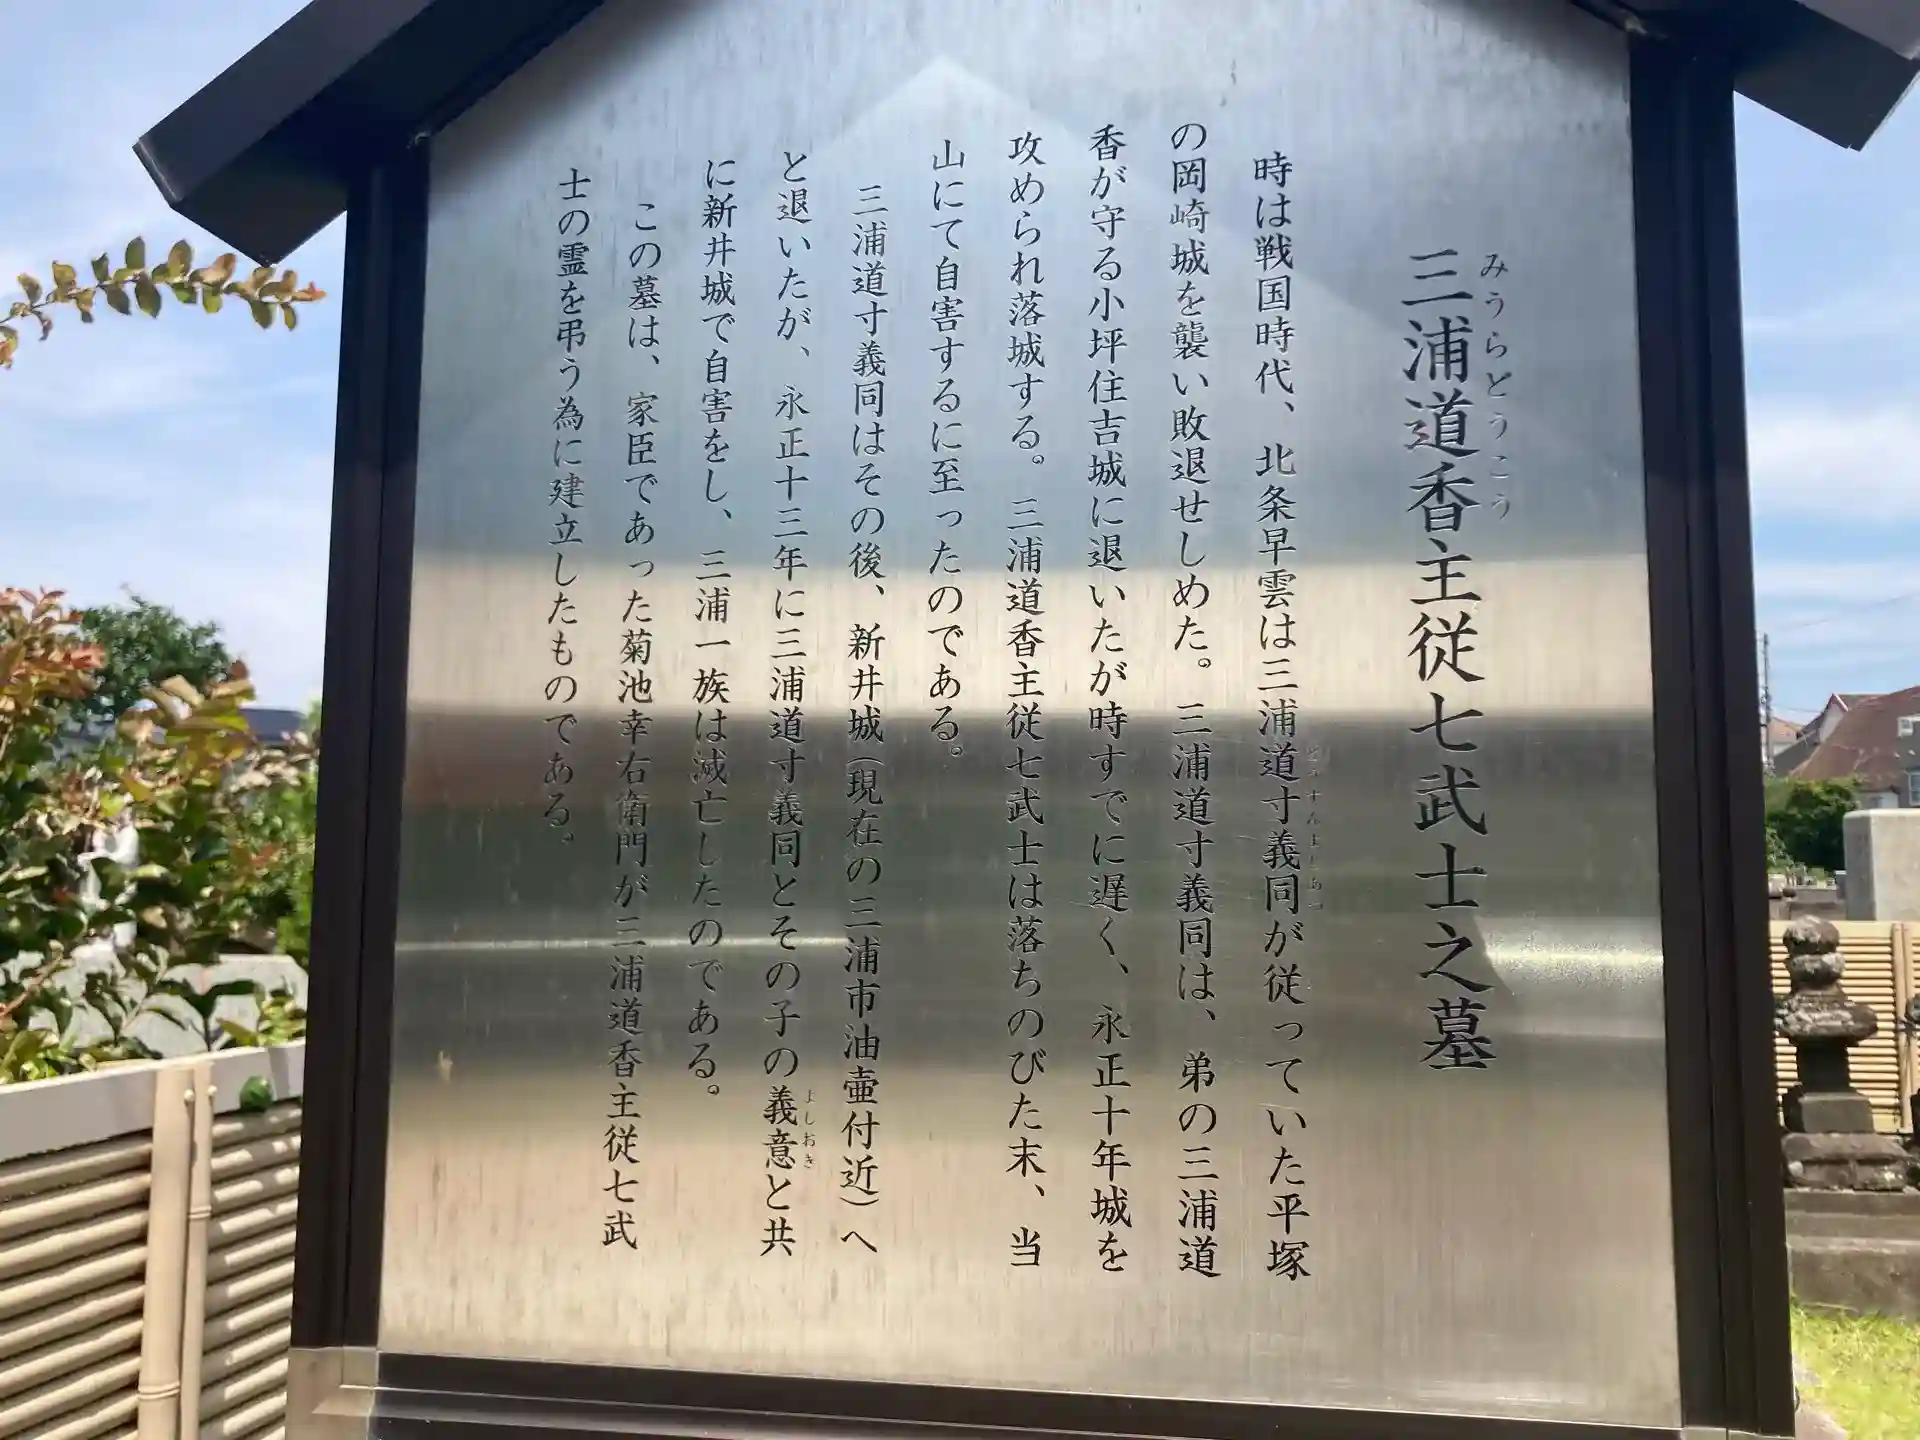 三浦道香主従七武士之墓
みうらどうこう
時は戦国時代、北条早雲は三浦道寸義同が従っていた平塚
どうすんよしあつ
の岡崎城を襲い敗退せしめた。三浦道寸義同は、弟の三浦道
香が守る小坪住吉城に退いたが時すでに遅く、永正十年城を
攻められ落城する。三浦道香主従七武士は落ちのびた末、当
山にて自害するに至ったのである。
三浦道寸義同はその後、新井城(現在の三浦市油壷付近)へ
と退いたが、永正十三年に三浦道寸義同とその子の義意と共
よしおき
に新井城で自害をし、三浦一族は滅亡したのである。
この墓は、家臣であった菊池幸右衛門が三浦道香主従七武
士の霊を弔う為に建立したものである。